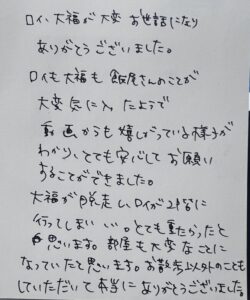 ロイ、大福が大変お世話になり
ありがとうございました。
ロイも大福も飯尾さんのことが
大変気に入ったようで
動画からも嬉しがっている様子が
わかり、とても安心してお願い
することができました。
大福が脱走し、ロイが
行ってしまい とても重たかったと
思います。部屋も大変なことに
なっていたと思います。お散歩以外のことも
していただいて本当にありがとうございました。